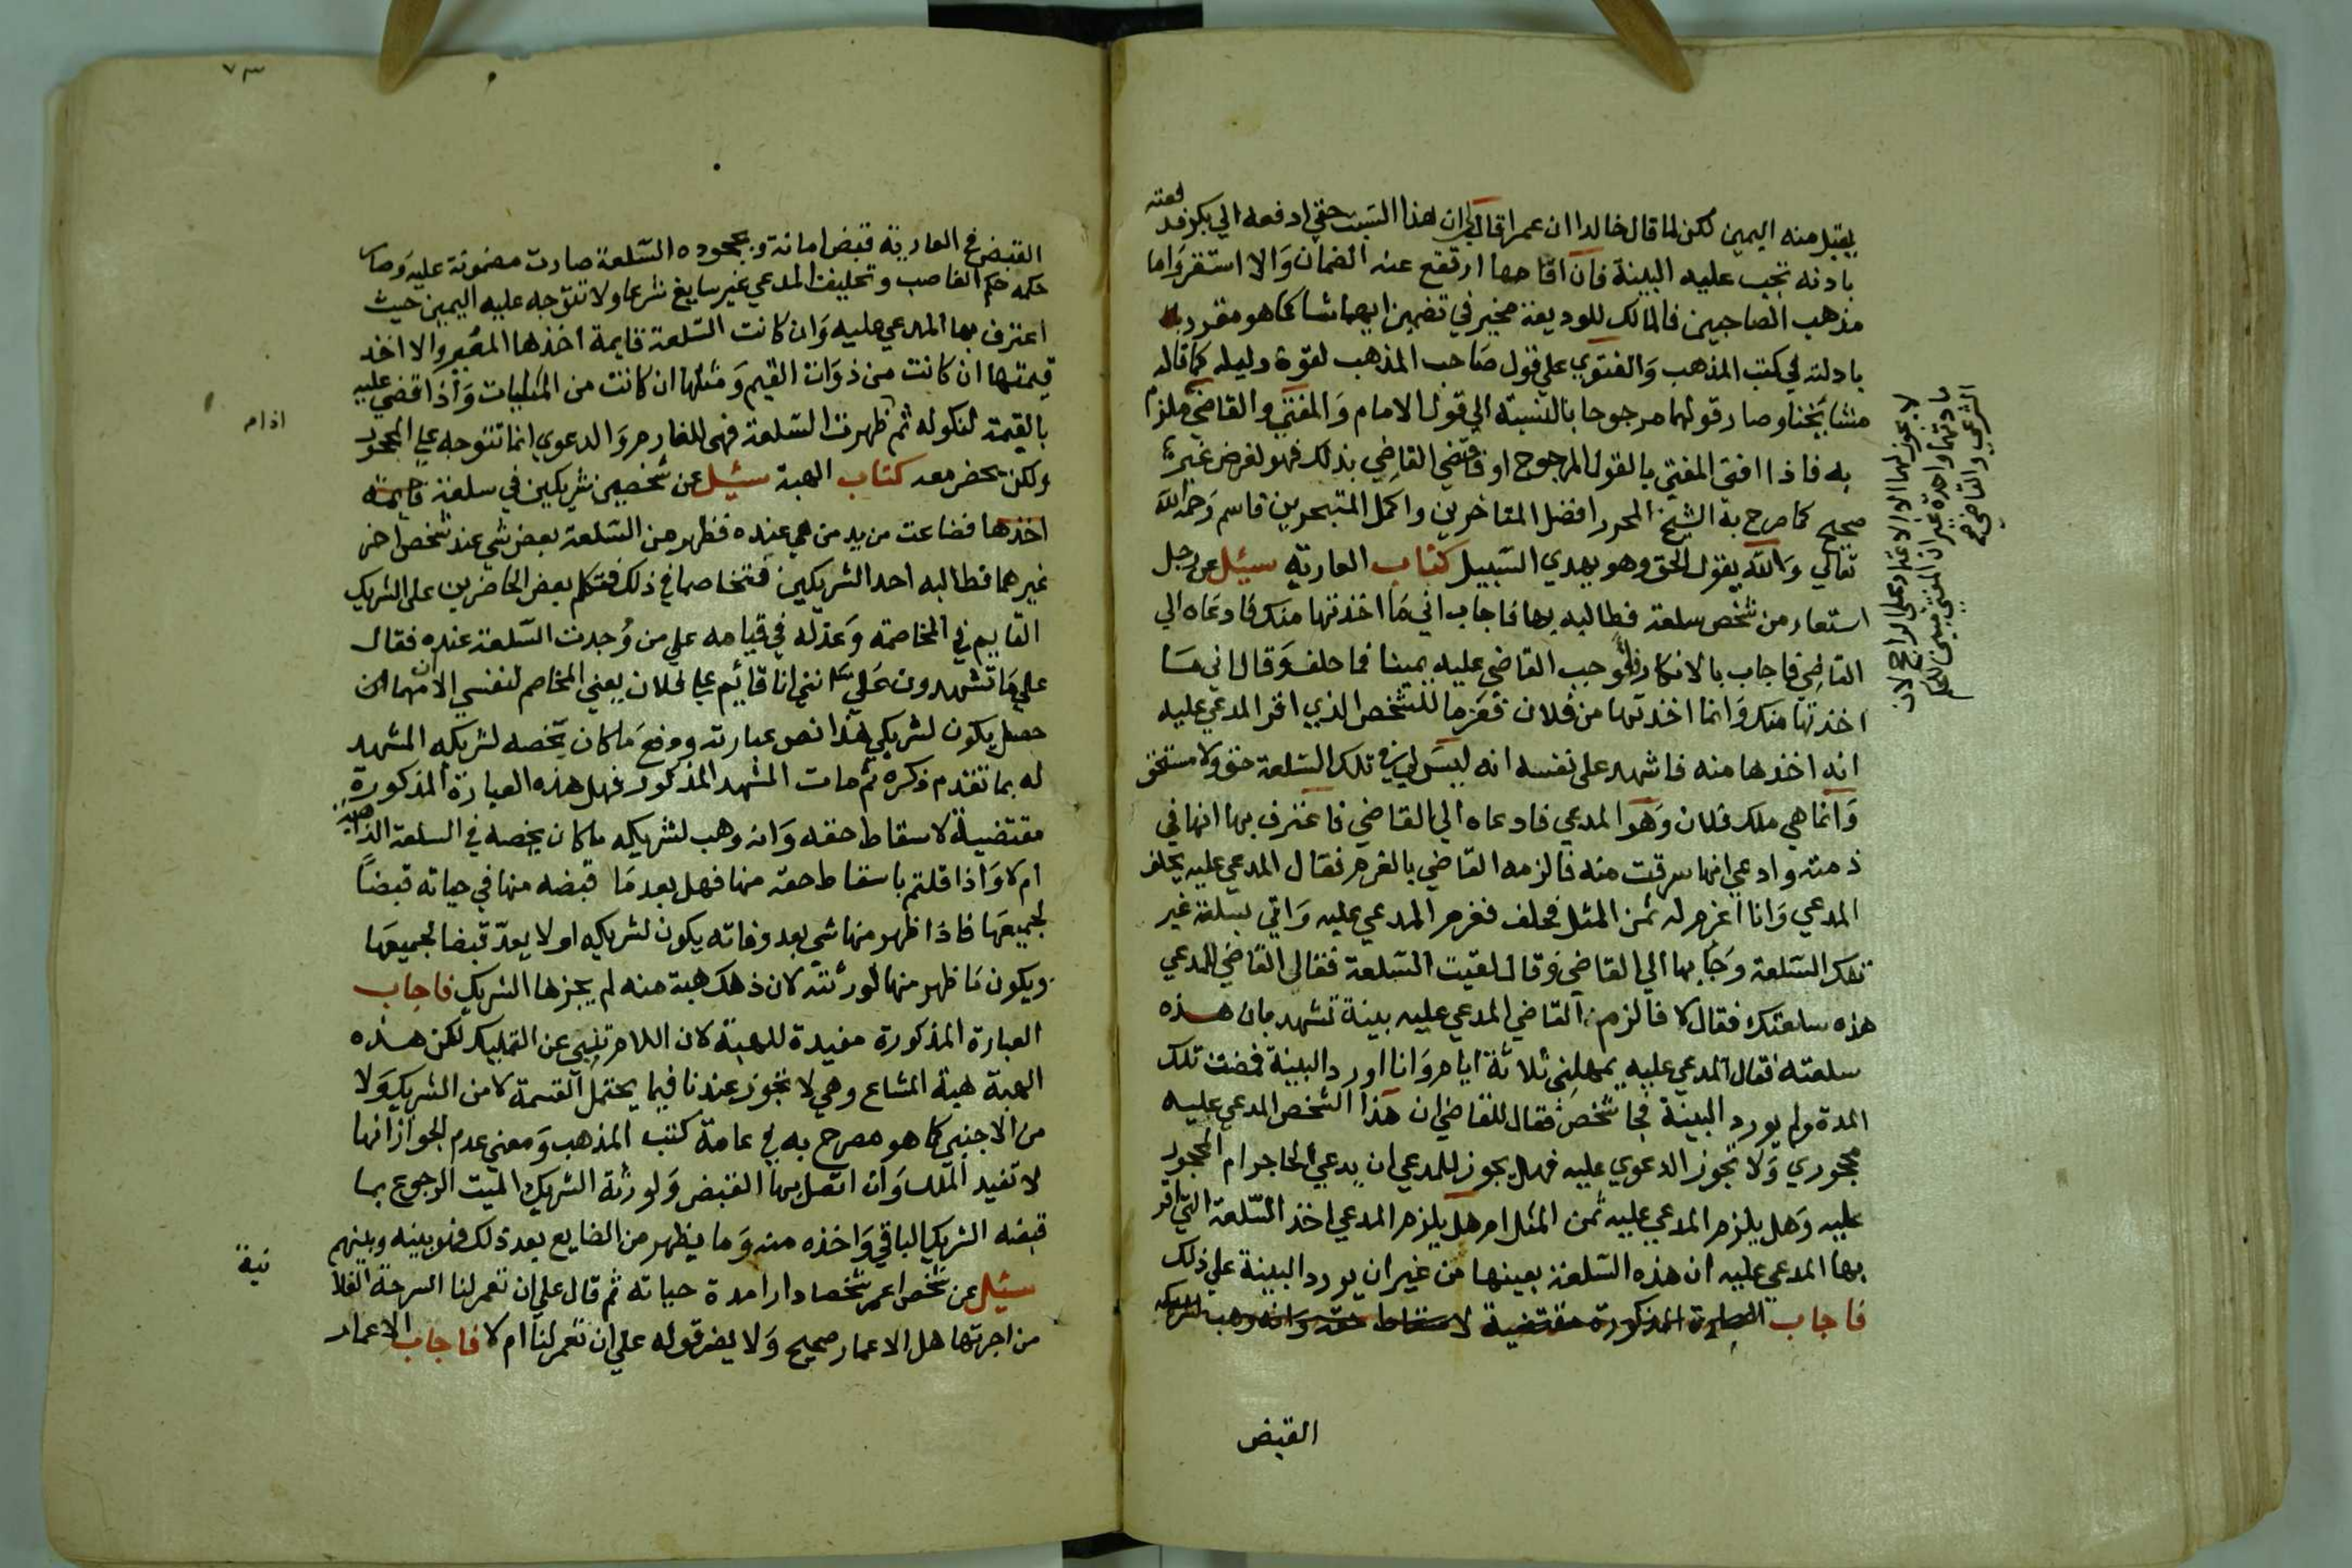 يقبل منه اليمين لكن لما قال خالد ان عمرا قال لي ان هذا السبت حقي ادفعه الي بكر فدفعته
باذنه تجب عليه البينة فان اقامها ارتفع عنه الضمان والا استقر واما
مذهب الصاحبين فالمالك للوديعة مخير في تضمين ايهما شا كما هو مقرر
بادلته في كتب المذهب والفتوي علي قول صاحب المذهب لقوة دليله كما قاله
مشايخنا وصار قولهما مرجوحا بالنسبة الي قول الامام والمفتي والقاضي ملزم
به فاذا افتى المفتي بالقول المرجوح او قضي القاضي بذلك فهو لغرض غير
صحيح كما صرح به الشيخ المحرر افضل المتاخرين واكمل المتبحرين قاسم رحمه الله
تعالي والله يقول الحق وهو يهدي السبيل كتاب العارية سئيل عن رجل
استعار من شخص سلعة فطالبه بها فاجاب اني ما اخذتها منك فادعاه الي
القاضي فاجاب بالانكار فاوجب القاضي عليه يمينا فما حلف وقال اني ما
اخذتها منك وانما اخذتها من فلان فغرما للشخص الذي اقر المدعي عليه
انه اخذها منه فاشهد على نفسه انه ليس لي في تلك السلعة حق ولا مستحق
وانما هي ملك فلان وهو المدعي فادعاه الي القاضي فاعترف بها انها في
ذمته وادعي انها سرقت منه فالزمه القاضي بالغرم فقال المدعي عليه يحلف
المدعي وانا اغرم له ثمن المثل فحلف فغرم المدعي عليه واتي بسلعة غير
تلك السلعة وجا بها الي القاضي وقال لقيت السلعة فقال القاضي للمدعي
هذه سلعتك فقال لا فالزم القاضي المدعي عليه بينة تشهد بان هذه
سلعته فقال المدعي عليه يمهلني ثلاثة ايام وانا اورد البينة فمضت تلك
المدة ولم يورد البينة فجا شخص فقال للقاضي ان هذا الشخص المدعي عليه
محجوري ولا تجوز الدعوي عليه فهل يجوز للمدعي ان يدعي الحاجر ام المحجور
عليه وهل يلزم المدعي عليه ثمن المثل ام هل يلزم المدعي اخذ السلعة التي اقر
بها المدعي عليه ان هذه السلعة بعينها من غير ان يورد البينة علي ذلك
فاجاب العبارة المذكورة مقتضية لاسقاط حقه وانه وهب لشريكه
القبض
لا يجوز لهما الا الاعتماد على الراجح لان
مادتهما واحدة غير ان المفتي مبين للحكم
الشرعي والقاضي
٧٣
القبض في العارية قبض امانة وبجحوده السلعة صارت مضمونة عليه وصار
حكمه حكم الغاصب وتحليف المدعي غير سايغ شرعا ولا تتوجه عليه اليمين حيث
اعترف بها المدعي عليه وان كانت السلعة قايمة اخذها المعير والا اخذ
قيمتها ان كانت من ذوات القيم ومثلها ان كانت من المثليات واذا قضي عليه
بالقيمة لنكوله ثم ظهرت السلعة فهي للغارم والدعوي انما تتوجه علي المحجور
ولكن بحضر معه كتاب الهبة سئيل عن شخصين شريكين في سلعة قايمة
اخذها فضاعت من يد من هي عنده فظهر من السلعة بعض شي عند شخص اخر
غيرهما فطالبه احد الشريكين فتخاصما في ذلك فتكلم بعض الحاضرين على الشريك
القايم في المخاصمة وعذله في قيامه علي من وجدت السلعة عنده فقال
علي ما تشهدون علي انني انا قائيم علي فلان يعني المخاصم لنفسي الا ان مهما
حصل يكون لشريكي هذا نص عبارته ورفع ما كان يخصه لشريكه المشهد
له بما تقدم ذكره ثم مات المشهد المذكور فهل هذه العبارة المذكورة
مقتضية لاسقاط حقه وانه وهب لشريكه ما كان يخصه في السلعة
ام لا واذا قلتم باسقاط حقه منها فهل يعد ما قبضه منها في حياته قبضا
لجميعها فاذا ظهر منها شي بعد وفاته يكون لشريكه او لا يعد قبضا لجميعها
ويكون ما ظهر منها لورثته لان ذلك هبة منه لم يحزها الشريك فاجاب
العبارة المذكورة مفيدة للهبة لان اللام تنبي عن التمليك لكن هذه
الهبة هبة المشاع وهي لا تجوز عندنا فيما يحتمل القسمة لا من الشريك ولا
من الاجنبي كما هو مصرح به في عامة كتب المذهب ومعني عدم الجواز انها
لا تفيد الملك وان اتصل بها القبض ولورثة الشريك الميت الرجوع بما
قبضه الشريك الباقي واخذه منه وما يظهر من الضايع بعد ذلك فهو بينه وبينهم
سئيل عن شخص اعمر شخصا دارا مدة حياته ثم قال علي ان تعمر لنا السرحة
من اجرتها هل الاعمار صحيح ولا يضر قوله علي ان تعمر لنا ام لا فاجاب الاعمار